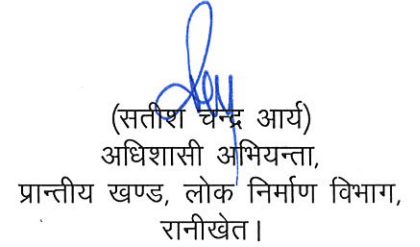 (सतीश चन्द्र आर्य)
अधिशासी अभियन्ता,
प्रान्तीय खण्ड, लोक निर्माण विभाग,
रानीखेत।